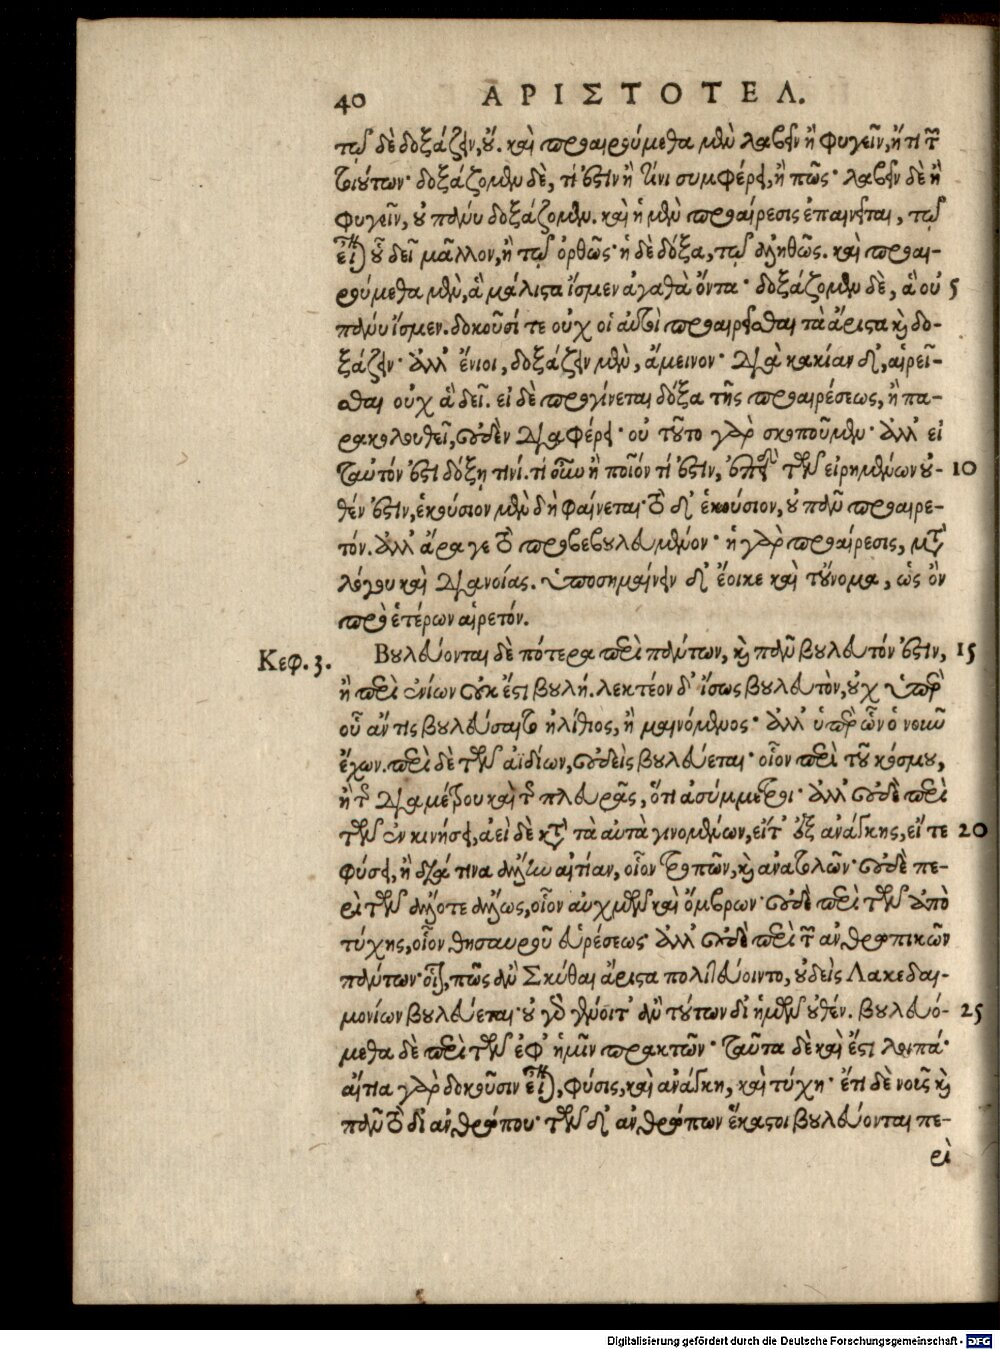 40 ΑΡΙΣΤΟΤΕΛ.
τῷ δὲ δοξάζειν, οὔ. καὶ προαιρούμεθα μὲν λαβεῖν ἢ φυγεῖν, ἤ τι τῶν
τοιούτων· δοξάζομεν δὲ, τί ἐστιν ἢ τίνι συμφέρει, ἢ πῶς· λαβεῖν δὲ ἢ
φυγεῖν, οὐ πάνυ δοξάζομεν. καὶ ἡ μὲν προαίρεσις ἐπαινεῖται, τῷ
εἶναι οὗ δεῖ μᾶλλον, ἢ τῷ ὀρθῶς· ἡ δὲ δόξα, τῷ ἀληθῶς. καὶ προαι-
ρούμεθα μὲν, ἃ μάλιστα ἴσμεν ἀγαθὰ ὄντα· δοξάζομεν δὲ, ἃ οὐ 5
πάνυ ἴσμεν. δοκοῦσί τε οὐχ οἱ αὐτοὶ προαιρεῖσθαι τὰ ἄριστα καὶ δο-
ξάζειν· ἀλλ' ἔνιοι, δοξάζειν μὲν, ἄμεινον· διὰ κακίαν δ', αἱρεῖ-
σθαι οὐχ ἃ δεῖ. εἰ δὲ προγίνεται δόξα τῆς προαιρέσεως, ἢ πα-
ρακολουθεῖ, οὐδὲν διαφέρει· οὐ τοῦτο γὰρ σκοποῦμεν· ἀλλ' εἰ
ταὐτόν ἐστι δόξῃ τινί. τί οὖν ἢ ποῖόν τί ἐστιν, ἐπειδὴ τῶν εἰρημένων οὐ- 10
θέν ἐστιν, ἑκούσιον μὲν δὴ φαίνεται· τὸ δ' ἑκούσιον, οὐ πᾶν προαιρε-
τόν. ἀλλ' ἆρα γε τὸ προβεβουλευμένον· ἡ γὰρ προαίρεσις, μετὰ
λόγου καὶ διανοίας. ὑποσημαίνειν δ' ἔοικε καὶ τοὔνομα, ὡς ὂν
πρὸ ἑτέρων αἱρετόν.
Κεφ. 3. Βουλεύονται δὲ πότερα περὶ πάντων, καὶ πᾶν βουλευτόν ἐστιν, 15
ἢ περὶ ἐνίων οὐκ ἔστι βουλή. λεκτέον δ' ἴσως βουλευτὸν, οὐχ ὑπὲρ
οὗ ἄν τις βουλεύσαιτο ἠλίθιος, ἢ μαινόμενος· ἀλλ' ὑπὲρ ὧν ὁ νοῦν
ἔχων. περὶ δὲ τῶν ἀϊδίων, οὐδεὶς βουλεύεται· οἷον περὶ τοῦ κόσμου,
ἢ τῆς διαμέτρου καὶ τῆς πλευρᾶς, ὅτι ἀσύμμετροι· ἀλλ' οὐδὲ περὶ
τῶν ἐν κινήσει, ἀεὶ δὲ κατὰ τὰ αὐτὰ γινομένων, εἴτ' ἐξ ἀνάγκης, εἴτε 20
φύσει, ἢ διά τινα ἄλλην αἰτίαν, οἷον τροπῶν, καὶ ἀνατολῶν· οὐδὲ πε-
ρὶ τῶν ἄλλοτε ἄλλως, οἷον αὐχμῶν καὶ ὄμβρων· οὐδὲ περὶ τῶν ἀπὸ
τύχης, οἷον θησαυροῦ εὑρέσεως· ἀλλ' οὐδὲ περὶ τῶν ἀνθρωπικῶν
πάντων· οἷον, πῶς ἂν Σκύθαι ἄριστα πολιτεύοιντο, οὐδεὶς Λακεδαι-
μονίων βουλεύεται· οὐ γὰρ γένοιτ' ἂν τούτων δι' ἡμῶν οὐθέν. βουλευό- 25
μεθα δὲ περὶ τῶν ἐφ' ἡμῖν πρακτῶν· ταῦτα δὲ καὶ ἔστι λοιπά·
αἴτια γὰρ δοκοῦσιν εἶναι, φύσις, καὶ ἀνάγκη, καὶ τύχη· ἔτι δὲ νοῦς καὶ
πᾶν τὸ δι' ἀνθρώπου· τῶν δ' ἀνθρώπων ἕκαστοι βουλεύονται πε-
ρὶ
Digitalisierung gefördert durch die Deutsche Forschungsgemeinschaft - DFG